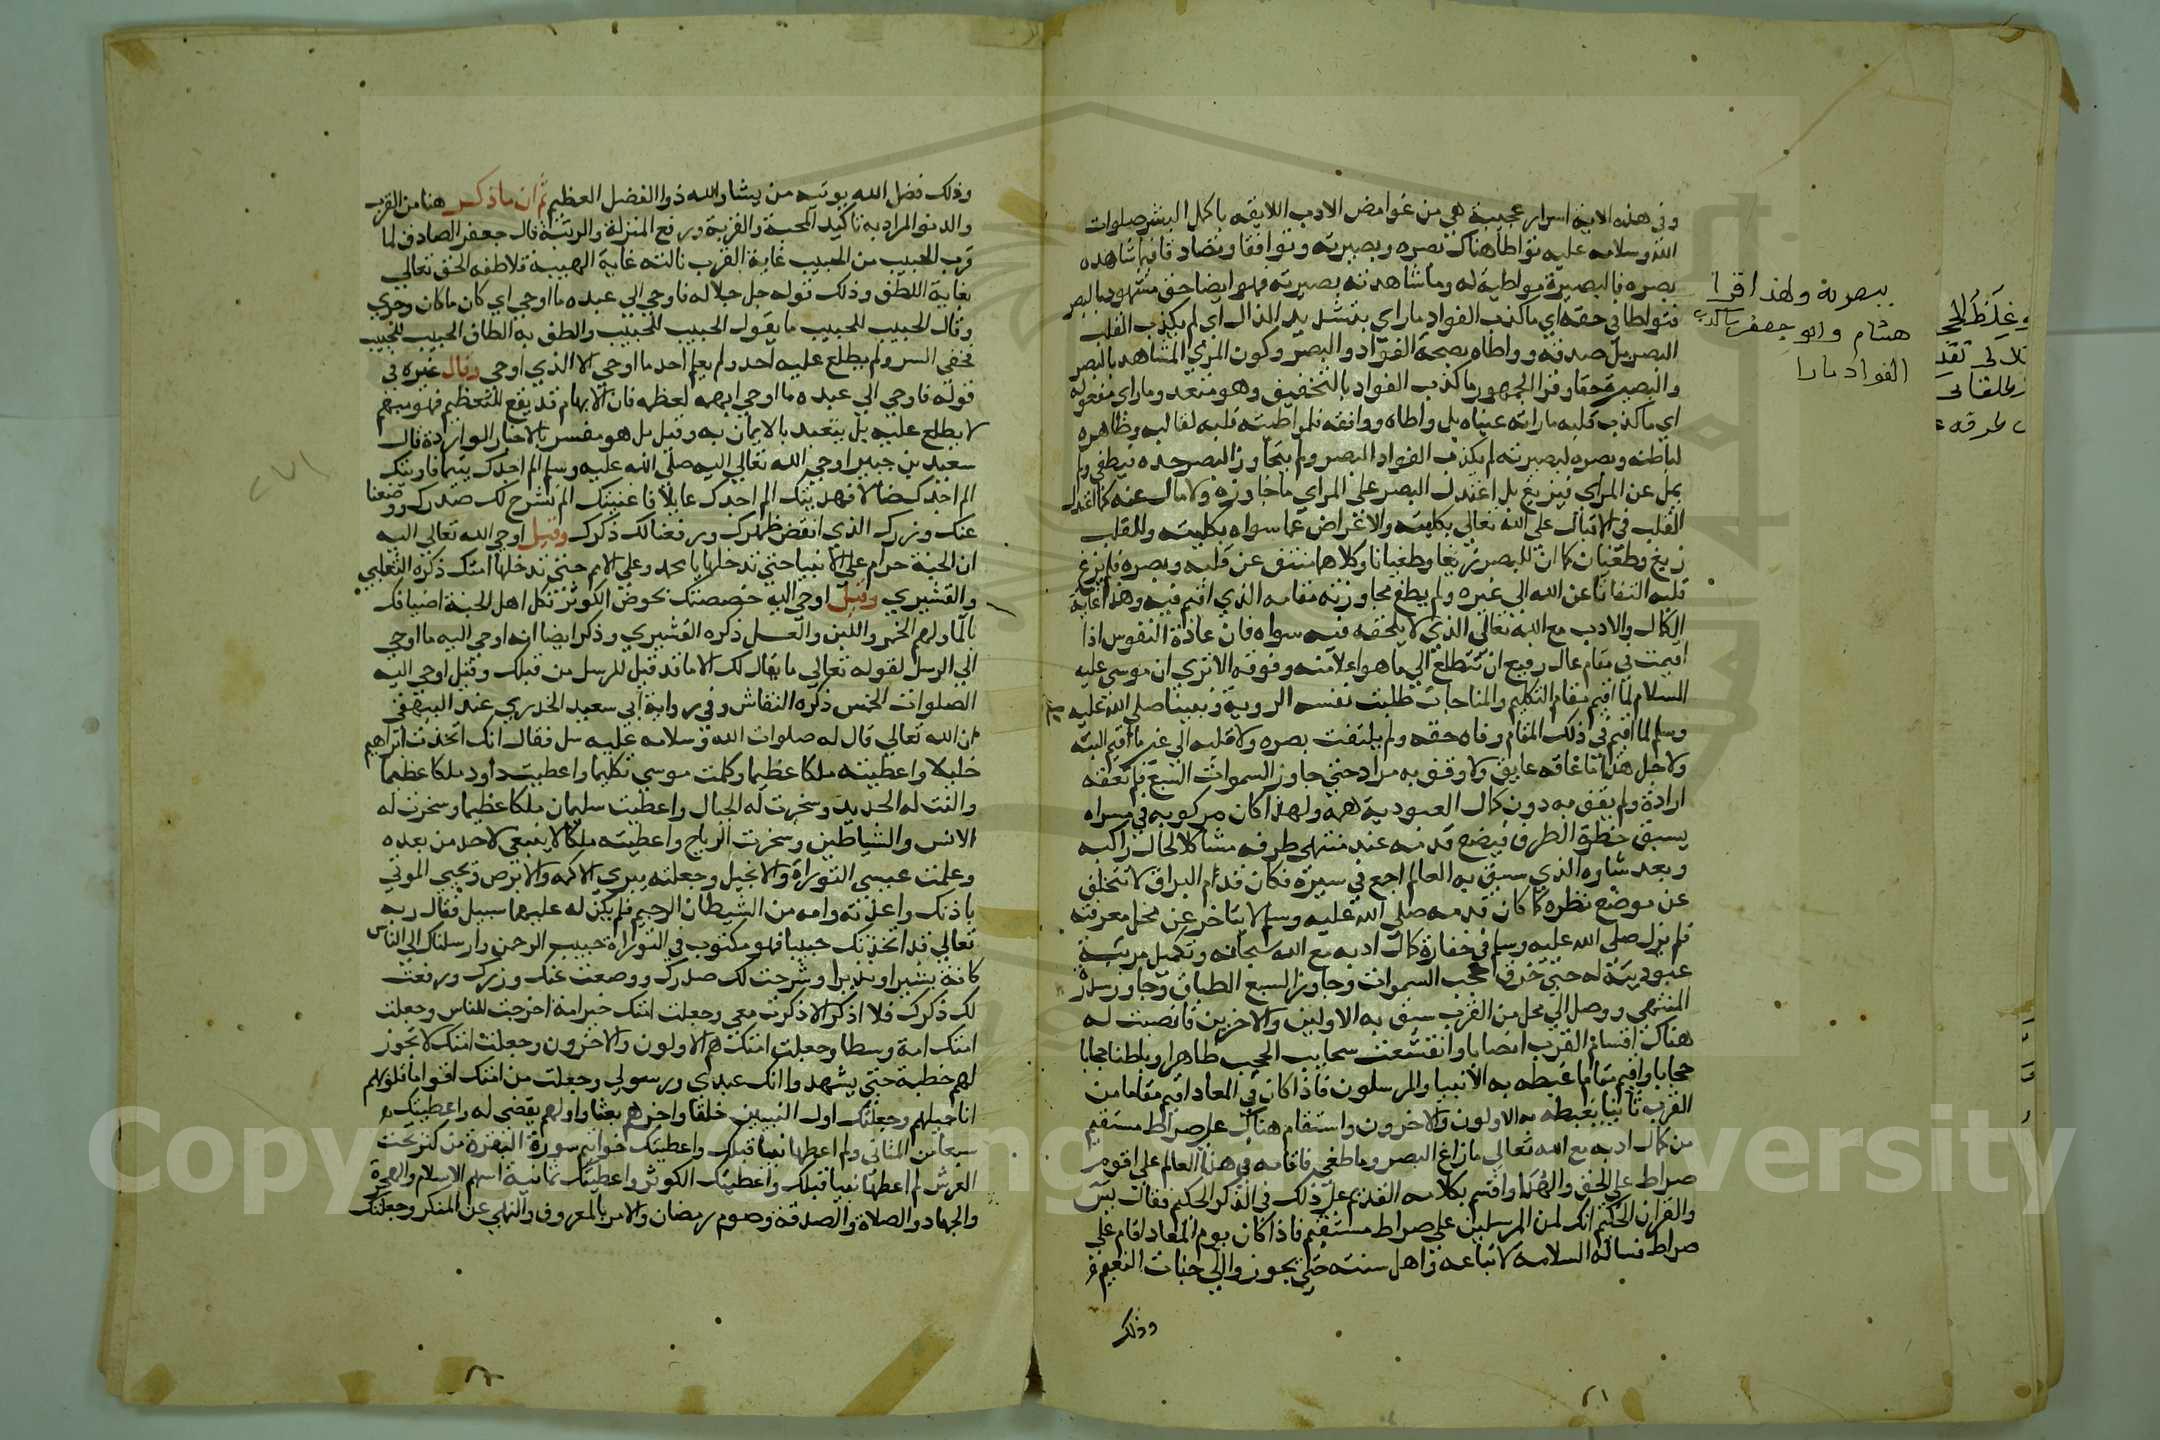 وفي هذه الاية اسرار عجيبة هي من غوامض الادب اللايقه باكمل البشر صلوات
الله وسلامه عليه تواطأ هناك بصره وبصيرته وتوافقا وتصادقا فيما شاهده
بصره فالبصيرة مواطية له وما شاهدته بصيرته فهو ايضا حق مشهود بالبصر
فتواطا في حقه اي ما كذب الفواد ما راي بتشديد الذال اي لم يكذب القلب
البصر بل صدقه وواطاه بصحة الفواد والبصر وكون المري المشاهد بالبصر
والبصيرة حقا وقرا الجمهور ما كذب الفواد بالتخفيف وهو متعد وما راي مفعوله
اي ما كذب قلبه ما راته عيناه بل واطاه ووافقه فلمواطية قلبه لقالبه وظاهره
لباطنه وبصره لبصيرته لم يكذب الفواد البصر ولم يتجاوز البصر حده فيطغي ولم
يمل عن المراي فيزيغ بل اعتدل البصر على المراي ما جاوزه ولا مال عنه كما اعتدل
القلب في الاقبال على الله تعالي بكليته والاعراض عما سواه بكليته وللقلب
زيغ وطغيان كما ان للبصر زيغا وطغيانا وكلاهما منتف عن قلبه وبصره فلم يزغ
قلبه التفاتا عن الله الي غيره ولم يطغ مجاوزته مقامه الذي اقيم فيه وهذا غاية
الكمال والادب مع الله تعالي الذي لا يلحقه فيه سواه فان عادة النفوس اذا
اقيمت في مقام عال رفيع ان تتطلع الي ما هو اعلا منه وفوقه الا تري ان موسي عليه
السلام لما اقيم مقام التكليم والمناجاة طلبت نفسه الروية ونبينا صلي الله عليه
وسلم لما اقيم في ذلك المقام وفاه حقه ولم يلتفت بصره ولا قلبه الي غير ما اقيم فيه البتة
ولاجل هذا ما عاقه عايق ولا وقف به مراد حتي جاوز السموات السبع فلم تعقه
ارادة ولم يقف به دون كمال العبودية همة ولهذا كان مركوبه في مسراه
يسبق خطوه الطرف فيضع قدمه عند منتهي طرفه مشاكلا لحال راكبه
وبعد شاوه الذي سبق به العالم اجمع في سيره فكان قدم البراق لا تتخلف
عن موضع نظره كما كان قدمه صلي الله عليه وسلم لا يتاخر عن محل معرفته
فلم يزل صلي الله عليه وسلم في خفارة كمال ادبه مع الله سبحانه وتكميل مرتبة
عبوديته له حتي خرق حجب السموات وجاوز السبع الطباق وجاوز سدرة
المنتهي ووصل الي محل من القرب سبق به الاولين والاخرين فانصبت له
هناك اقسام القرب انصبابا وانقشعت سحايب الحجب ظاهرا وباطنا حجابا
حجابا واقيم مقاما غبطه به الانبيا والمرسلون فاذا كان في المعاد اقيم مقاما من
القرب ثانيا يغبطه به الاولون والاخرون واستقام هناك على صراط مستقيم
من كمال ادبه مع الله تعالي ما زاغ البصر وما طغي فاقامه في هذا العالم علي اقوم
صراط علي الحق والهدي واقسم بكلامه القديم علي ذلك في الذكر الحكيم فقال يس
والقران الحكيم انك لمن المرسلين علي صراط مستقيم فاذا كان يوم المعاد اقام علي
صراط فساله السلامه لاتباعه واهل سنته حتي يجوزوا الي جنات النعيم
وذلك
ببصرته ولهذا قرا
هشام وابو جعفر
الفواد ما را
وذلك فضل الله يوتيه من يشا والله ذوا الفضل العظيم ثم ان ما ذكر هنا من القرب
والدنو المراد به تاكيد المحبة والقربة ورفع المنزلة والرتبة قال جعفر الصادق لما
قرب الحبيب من الحبيب غاية القرب نالته غاية الهيبة فلاطفه الحق تعالي
بغاية اللطف وذلك قوله جل جلاله فاوحي الي عبده ما اوحي اي كان ما كان وجري
وقال الحبيب للحبيب ما يقول الحبيب للحبيب والطف به الطاف الحبيب للحبيب
فخفي السر ولم يطلع عليه احد ولم يعلم احد ما اوحي الا الذي اوحي وقال غيره في
قوله فاوحي الي عبده ما اوحي ابهمه لعظمه فان الابهام قد يقع للتعظيم فهو مبهم
لا يطلع عليه بل يتعبد بالايمان به وقيل بل هو مفسر بالاخبار الواردة قال
سعيد بن جبير اوحي الله تعالي اليه صلي الله عليه وسلم الم اجدك يتيما فاويتك
الم اجدك ضالا فهديتك الم اجدك عايلا فاغنيتك الم نشرح لك صدرك ووضعنا
عنك وزرك الذي انقض ظهرك ورفعنا لك ذكرك وقيل اوحي الله تعالي اليه
ان الجنة حرام علي الانبيا حتي تدخلها يا محمد وعلي الامم حتي تدخلها امتك ذكره الثعلبي
والقشيري وقيل اوحي اليه خصصتك بحوض الكوثر فكل اهل الجنة اضيافك
بالما ولهم الخمر واللبن والعسل ذكره القشيري وذكر ايضا انه اوحي اليه ما اوحي
الي الرسل لقوله تعالي ما يقال لك الا ما قد قيل للرسل من قبلك وقيل اوحي اليه
الصلوات الخمس ذكره النقاش وفي رواية ابي سعيد الخدري عند البيهقي
ان الله تعالي قال له صلوات الله وسلامه عليه سل فقال انك اتخذت ابراهيم
خليلا واعطيته ملكا عظيما وكلمت موسي تكليما واعطيت داود ملكا عظيما
والنت له الحديد وسخرت له الجبال واعطيت سليمان ملكا عظيما وسخرت له
الانس والشياطين وسخرت الرياح واعطيته ملكا لا ينبغي لاحد من بعده
وعلمت عيسي التوراة والانجيل وجعلته يبري الاكمه والابرص ويحيي الموتي
باذنك واعذته وامه من الشيطان الرجيم فلم يكن له عليهما سبيل فقال ربه
تعالي قد اتخذتك حبيبا فهو مكتوب في التوراة حبيب الرحمن وارسلتك الي الناس
كافة بشيرا ونذيرا وشرحت لك صدرك ووضعت عنك وزرك ورفعت
لك ذكرك فلا اذكر الا ذكرت معي وجعلت امتك خير امة اخرجت للناس وجعلت
امتك امة وسطا وجعلت امتك هم الاولون والاخرون وجعلت امتك لا تجوز
لهم خطبة حتي يشهدوا انك عبدي ورسولي وجعلت من امتك اقواما قلوبهم
اناجيلهم وجعلتك اول النبيين خلقا واخرهم بعثا واولهم يقضي له واعطيتك
سبعا من المثاني ولم اعطها نبيا قبلك واعطيتك خواتيم سورة البقرة من كنز تحت
العرش لم اعطها نبيا قبلك واعطيتك الكوثر واعطيتك ثمانية اسهم الاسلام والهجرة
والجهاد والصلاة والصدقة وصوم رمضان والامر بالمعروف والنهي عن المنكر وجعلتك